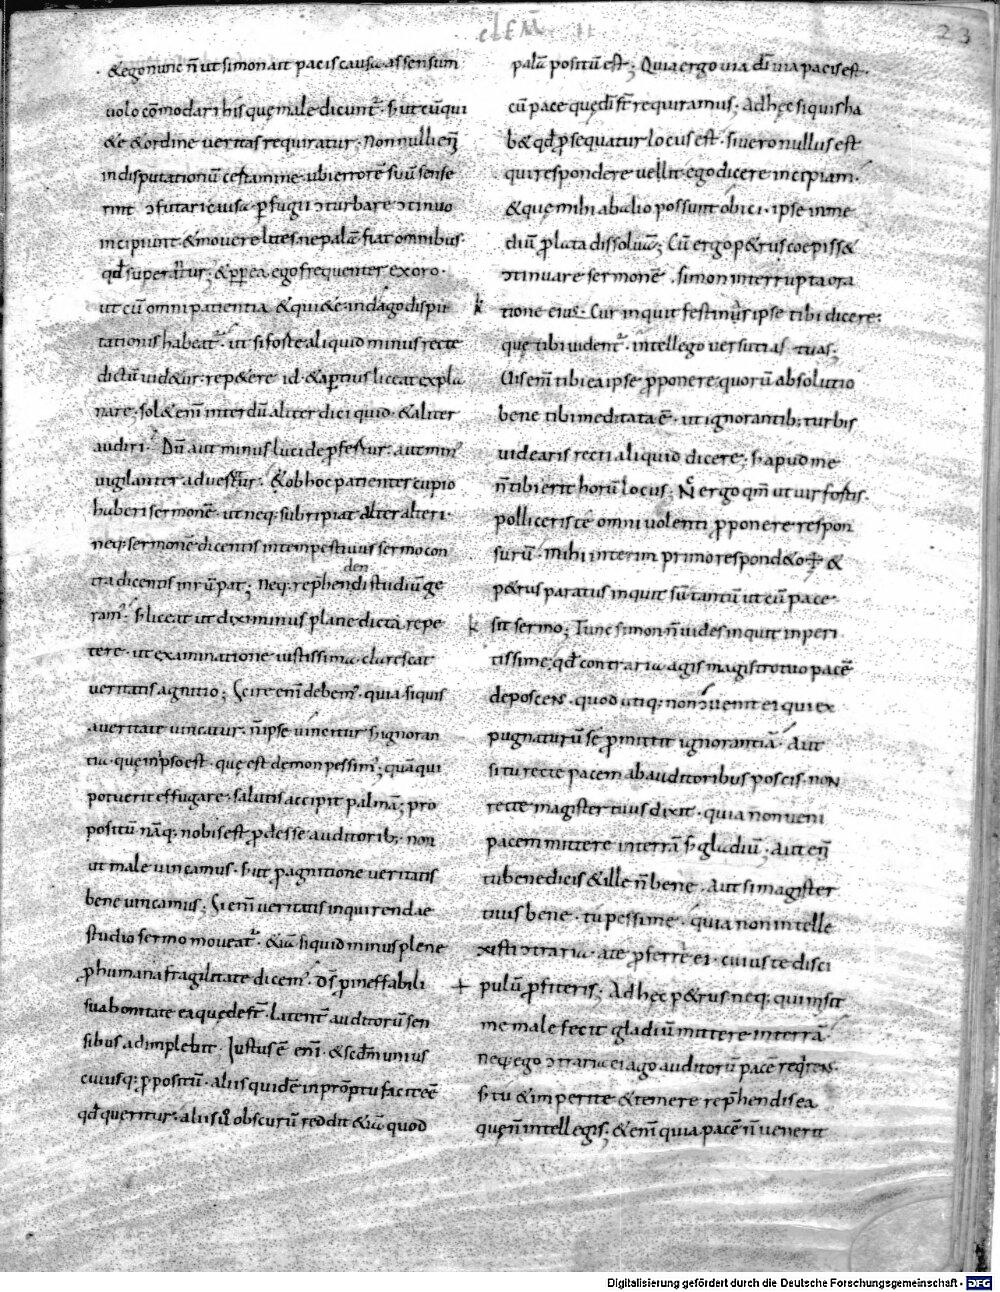 clem̄ II
23
&ego nunc n̄ ut simon ait pacis causa assensum
uolo cōmodari his quę male dicunt̄ · s; ut cū qui
&e & ordine ueritas requiratur · Non nulli eni̅
in disputationū certamine · ubi errorē suū sense
rint ɔfutari cuisa ꝑfugii ɔturbare ɔtinuo
incipiunt & mouere lites ne palā fiat omnibus ·
qd̄ superant̄ur ; & ꝓpt ea ego frequenter exoro ·
ut cū omni patientia & qui&e indago dispu
tationis habeat̄ · ut si forte aliquid minus recte
dictū uid&ur · rep&ere id & aptius liceat expla
nare ; sol& eni̅ interdū aliter dici quid · & aliter
audiri · Dū aut minus lucide ꝓfert̄ur · aut min᾽
uigilanter aduert̄ur · & ob hoc patienter cupio
haberi sermonē · ut neq; subripiat alter alteri ·
neq; sermonē dicentis intempestiuus sermo con
tradicentis inrūpat ; Neq; rep̄hendendi studiū ge
ram᾽ · s; liceat ut dixi minus plane dicta repe
tere · ut examinatione iustissima clarescat
ueritatis agnitio ; Scire eni̅ debem᾽ · quia siquis
a ueritate uincatur · n̄ ipse uincitur s; ignoran
tia · quę in ipso est · quę est demon pessim᾽ ; quā qui
potuerit effugare · salutis accipit palmā ; pro
positū nāq; nobis est ꝓdesse auditorib; · non
ut male uincamus · s; ut ꝓ agnitione ueritatis
bene uincamus ; Si eni̅ ueritatis inquirendae
studio sermo moueat̄ · &iā siquid minus plene
ꝓ humana fragilitate dicem᾽ · d̄s ꝓ ineffabili
sua bonitate ea quę desr̄t · latent̄ auditorū sen
sibus adimplebit · Iustus ē eni̅ · & scd̄m unius
cuiusq; ꝓpositū · aliis quidē in prōptu facit eē
qd̄ queritur · aliis u̅ obscurū reddit &iā quod
palā positū est ; Quia ergo uia d̄i uia pacis est ·
cū pace quę d̄i sr̄t requiramus ; Ad hęc siquis ha
b& qd̄ ꝓsequatur locus est · si uero nullus est
qui respondere uellit · ego dicere incipiam ·
& que mihi ab alio possunt obici · ipse in me
diū ꝓlata dissoluā ; Cū ergo p&rus coepiss&
ɔtinuare sermonē · simon interrupta ora
tione eius · Cur inquit festinas ipse tibi dicere ;
quę tibi uident̄ · intellego uersutias tuas ;
Uis eni̅ tibi ea ipse ꝓponere quorū absolutio
bene tibi meditata ē · ut ignorantib; turbis
uidearis recti aliquid dicere ; s; apud me
n̄ tibi erit horū locus ; Nc̄ ergo qm̄ ut uir fortis ·
polliceris te omni uolenti ꝓponere respon
surū · mihi interim primo responde &
p&rus paratus inquit sū tantū ut cū pace
sit sermo ; Tunc simon n̄ uides inquit inperi
tissime · qd̄ contraria agis magistro tuo pacē
deposcens · quod utiq; non ɔuenit ei qui ex
pugnaturū se ꝓmittit ignorantiā · Aut
si tu recte pacem ab auditoribus poscis · non
recte magister tuus dixit · quia non ueni
pacem mittere in terrā s; gladiū ; Aut eni̅
tu bene dicis & ille n̄ bene · Aut si magister
tuus bene · tu pessime · quia non intelle
xisti ɔtraria · a te ꝓferre ei · cuius te disci
pulū ꝓfiteris ; Ad hęc p&rus neq; qui misit
me male fecit gladiū mittere in terrā ·
neq; ego ɔtraria ei ago auditorū pacē reqrens ·
s; tu & imperite & temere rep̄hendis ea
quę n̄ intellegis ; &eni̅ quia pacē n̄ uenerit
Digitalisierung gefördert durch die Deutsche Forschungsgemeinschaft - DFG